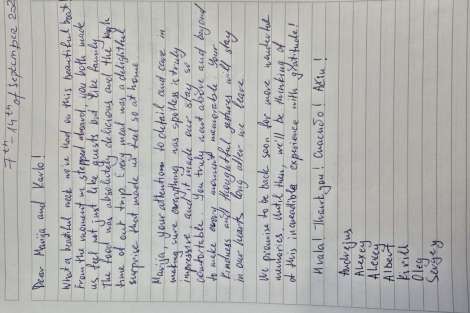 7th - 14th of September 202
Dear Marija and Karlo!
What a beautiful week we've had on this beautiful boat
From the moment we stepped aboard, you both made
us feel not just like guests but like family
The food was absolutely delicious and the high
time of out trip. Every meal was a delightful
surprise that made us feel so at home
Marija, your attention to detail and care in
making sure everything was spotless is truly
impressive, and it made our stay so
comfortable. You truly went above and beyond
to make every moment memorable. Your
kindness and thoughtful gestures will stay
in our hearts long after we leave
We promise to be back soon for more wonderful
memories. Until then, we'll be thinking of
of this incredible experience with gratitude!
Hvala! Thank you! Спасибо! Ačiū!
Andrejus
Alexey
Alexey
Albert
Kirill
Oleg
Sergey